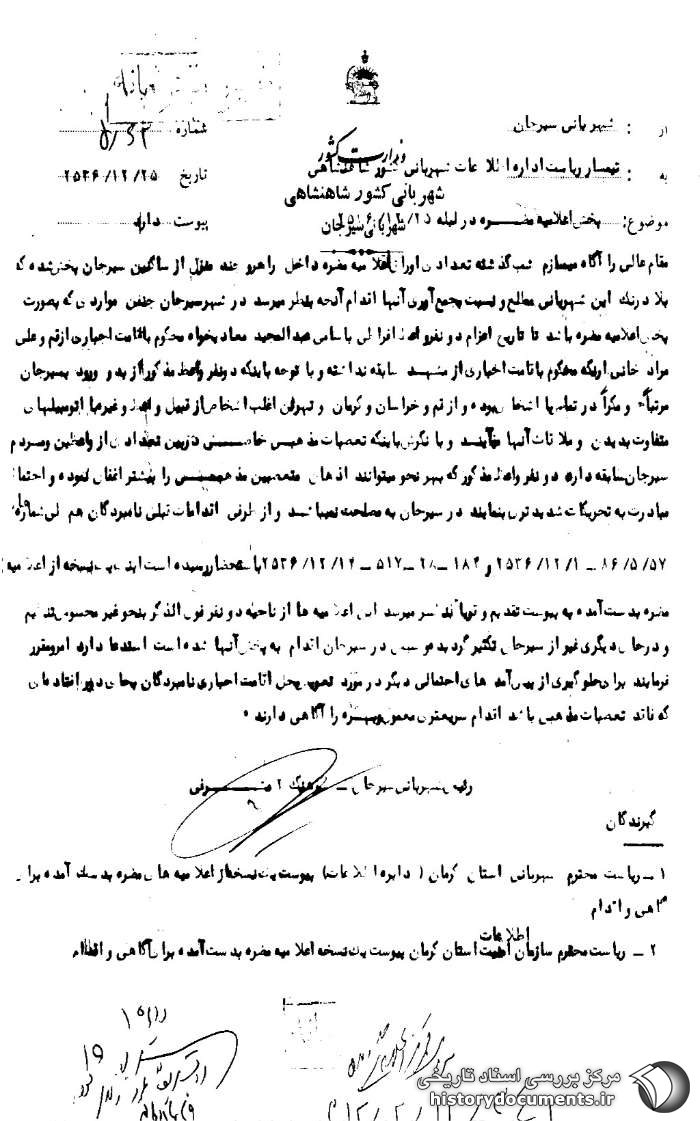 وزارت کشور
شهربانی کشور شاهنشاهی
شهربانی سیرجان
از : شهربانی سیرجان
شماره
به : تیمسار ریاست اداره اطلاعات شهربانی کشور شاهنشاهی
تاریخ ۲۵/ ۱۲/ ۲۵۳۶
موضوع: پخش اعلامیه مضره در لیله
پیوست دارد
مقام عالی را آگاه میسازم شب گذشته تعدادی اوراق اعلامیه مضره داخل راهرو چند منزل از ساکنین سیرجان پخش شده که
بلادرنگ این شهربانی مطلع و نسبت بجمع آوری آنها اقدام آنچه بنظر میرسد در شهر سیرجان چنین مواردی که بصورت
پخش اعلامیه مضره باشد تا تاریخ اعزام دو نفر واعظ افراطی باسامی عبدالمجید معادیخواه محکوم باقامت اجباری از قم و علی
مراد خانی ارنگه محکوم باقامت اجباری از مشهد سابقه نداشته و با توجه باینکه دو نفر واعظ مذکور از بدو ورود بسیرجان
مرتباً و مکراً در تماس با اشخاص بوده و از قم و خراسان و کرمان و تهران اغلب اشخاص از قبیل واعظ و غیر با اتومبیلهای
متفاوت بدیدن و ملاقات آنها میآیند و با نگرش باینکه تعصبات مذهبی خاصی دربین تعدادی از واعظین و مردم
سیرجان سابقه دارد دو نفر واعظ مذکور که بهر نحو میتوانند اذهان متعصبین مذهبی را بیشتر اغفال نموده و احتمالا
مبادرت به تحریکات شدیدتری بنمایند در سیرجان به مصلحت نمیباشد و از طرفی اقدامات قبلی نامبردگان هم طی شماره
۸۶/۵/۵۷ ــ ۲۵۳۶/۱۲/۱ و ۱۸۴ ــ ۲۸ ــ ۵۱۷ ــ ۲۵۳۶/۱۲/۱۴ باستحضار رسیده است یک نسخه از اعلامیه
مضره بدست آمده به پیوست تقدیم و بنظر میرسد این اعلامیه ها از ناحیه دو نفر فوق الذکر بنحو غیر محسوس تنظیم
و در محل دیگری غیر از سیرجان تکثیر گردیده و سپس در سیرجان اقدام به پخش آنها شده است استدعا دارد امر و مقرر
فرمایند برای جلوگیری از پیش آمد های احتمالی دیگر در مورد تعویض محل اقامت اجباری نامبردگان بجای دور افتاده ای
که فاقد تعصبات مذهبی باشد اقدام سریعتری معمول و بهره را آگاهی دارند ۰
رئیس شهربانی سیرجان ــ سرهنگ ۲
گیرندگان
۱ ــ ریاست محترم شهربانی استان کرمان ( دایره اطلاعات) بپیوست یک نسخه از اعلامیه های مضره بدست آمده برای
آگاهی و اقدام
اطلاعات
۲ ــ ریاست محترم سازمان امنیت استان کرمان بپیوست یک نسخه اعلامیه مضره بدست آمده برای آگاهی و اقدام
مرکز بررسی اسناد تاریخی
historydocuments.ir